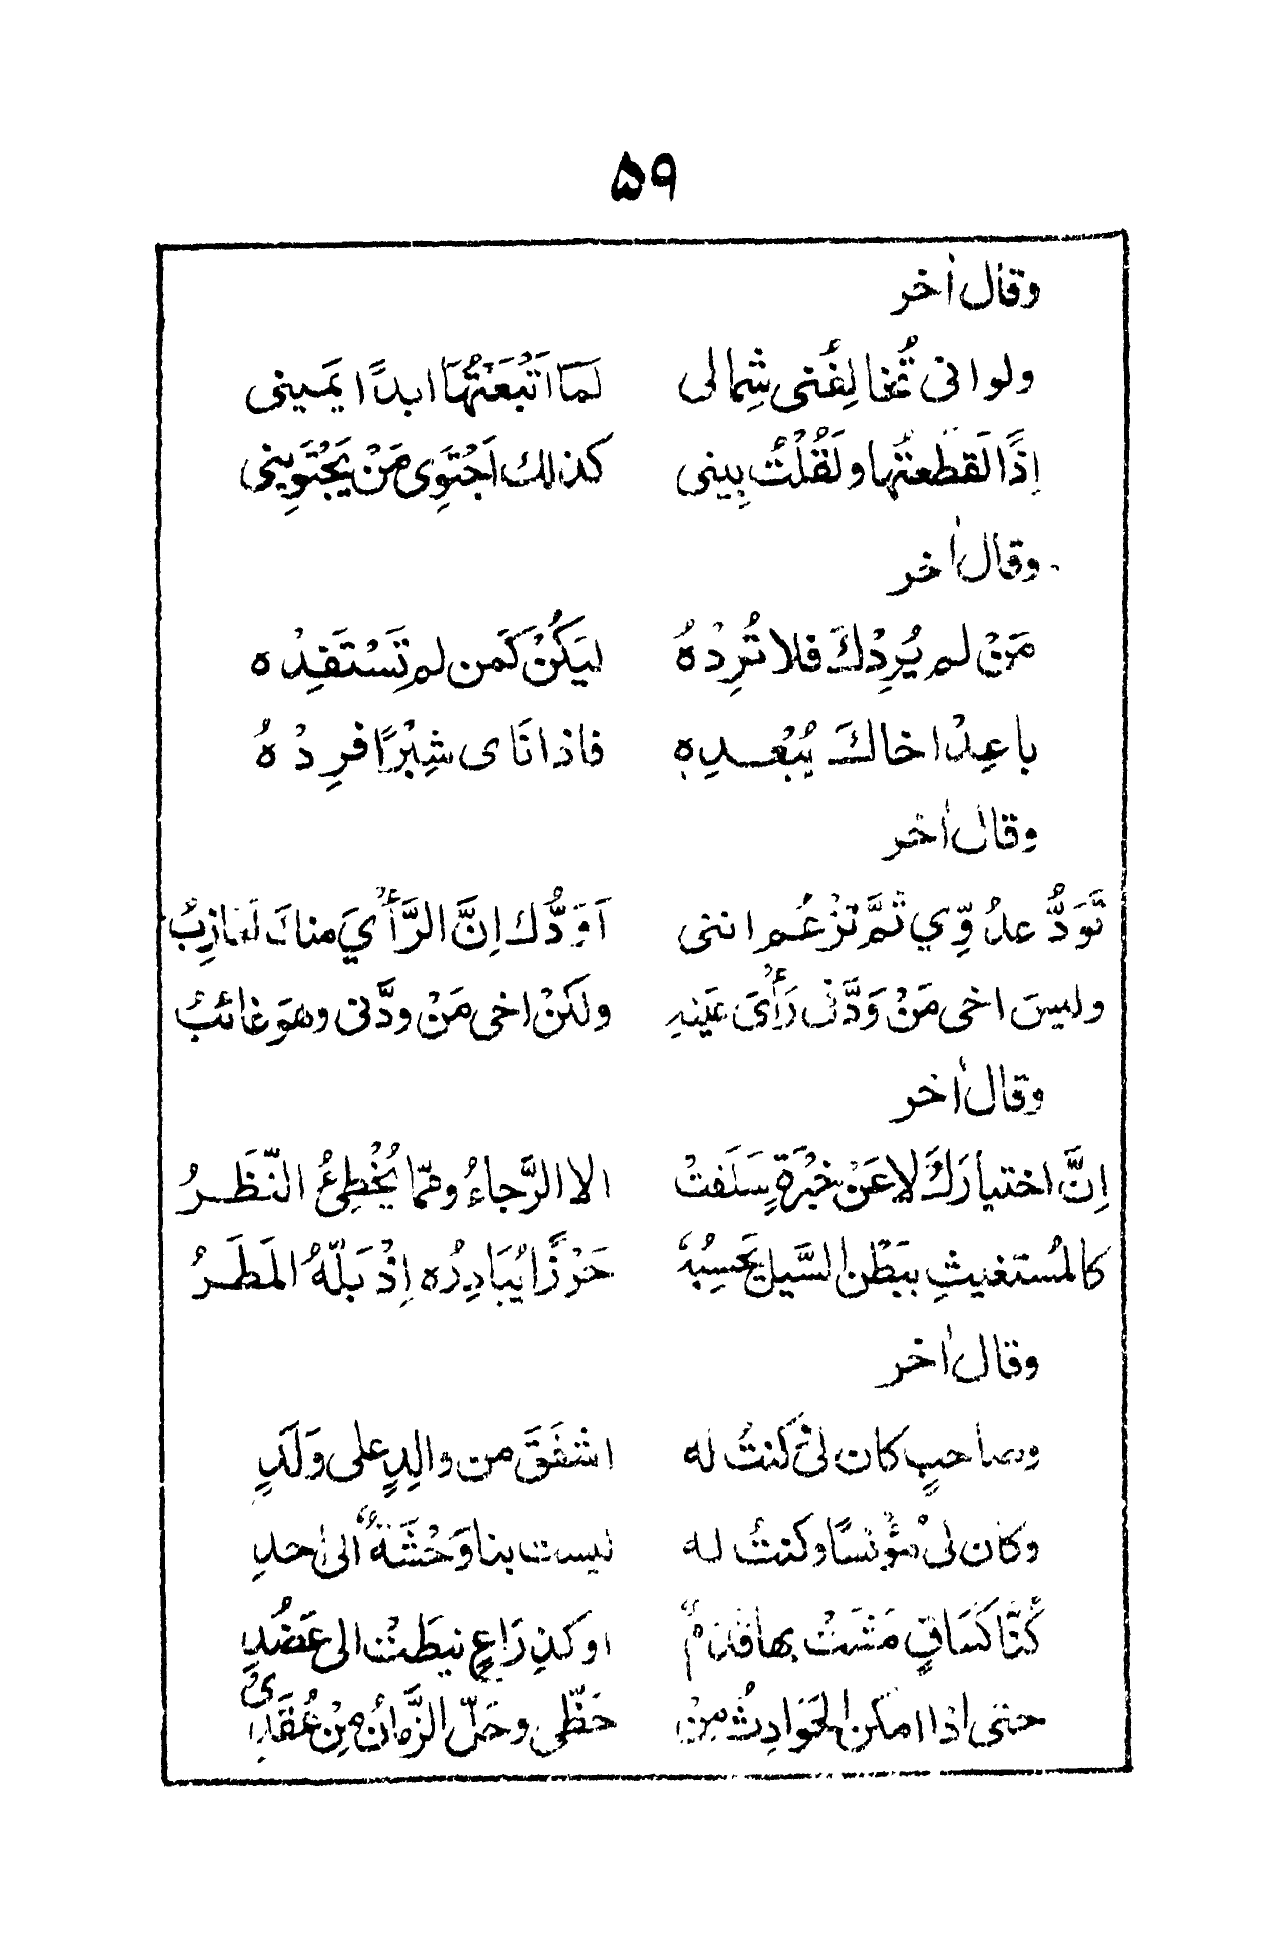 ٥٩
وقال اٰخر
ولو انى تُخالِفُنى شِمالى لَمَا اَتْبَعْتُهَا ابدًا يَمينى
إذًا لَقطعتُها ولَقُلْتُ بِينى كذلك اَجْتَوِى مَنْ يَجْتَوِينى
وقال اٰخر
مَنْ لم يُرِدْكَ فلا تُرِدْهُ ليَكُنْ كَمن لم تَسْتَفِدْه
باعِدْ اخاكَ يُبْعْدِه فاذا نَاى شِبْرًا فرِدْهُ
وقال اٰخر
تَوَدُّ عدُوِّي ثمَّ تزْعُم اننى اَوَدُّك اِنَّ الرَّأْيَ مناكَ لعازِبُ
وليسَ اخى مَنْ وَدَّنى رَأْىَ عَينهِ ولكنْ اخى مَنْ ودَّنى وهوَ غائبُ
وقال اٰخر
اِنَّ اختيارَكَ لا عَنْ خِبْرَةٍ سَلَفتْ الا الرَّجاءُ وممّا يُخْطِئُ النّظَرُ
كالمُستغيثِ ببَطْنِ السَّيلِ يحسِبُهُ حَرْزًا يُبَادِرُه اِذْ بَلّهُ المَطَرُ
وقال اٰخر
وصاحبٍ كان لى كنتُ له اشفَقَ من والِدٍ على وَلَدِ
وكان لىْ مؤنسًا وكنتُ له ليست بنا وَحْشَةٌ الى احدِ
كنّا كَسَاقٍ مَشَتْ بها قدمٌ او كذِرَاعٍ نيطَتْ الى عَضُدِ
حتى اذا امكن الحَوادِثُ مِنْ حَظّى وحَلّ الزَّمانُ مِنْ عُقَدِى